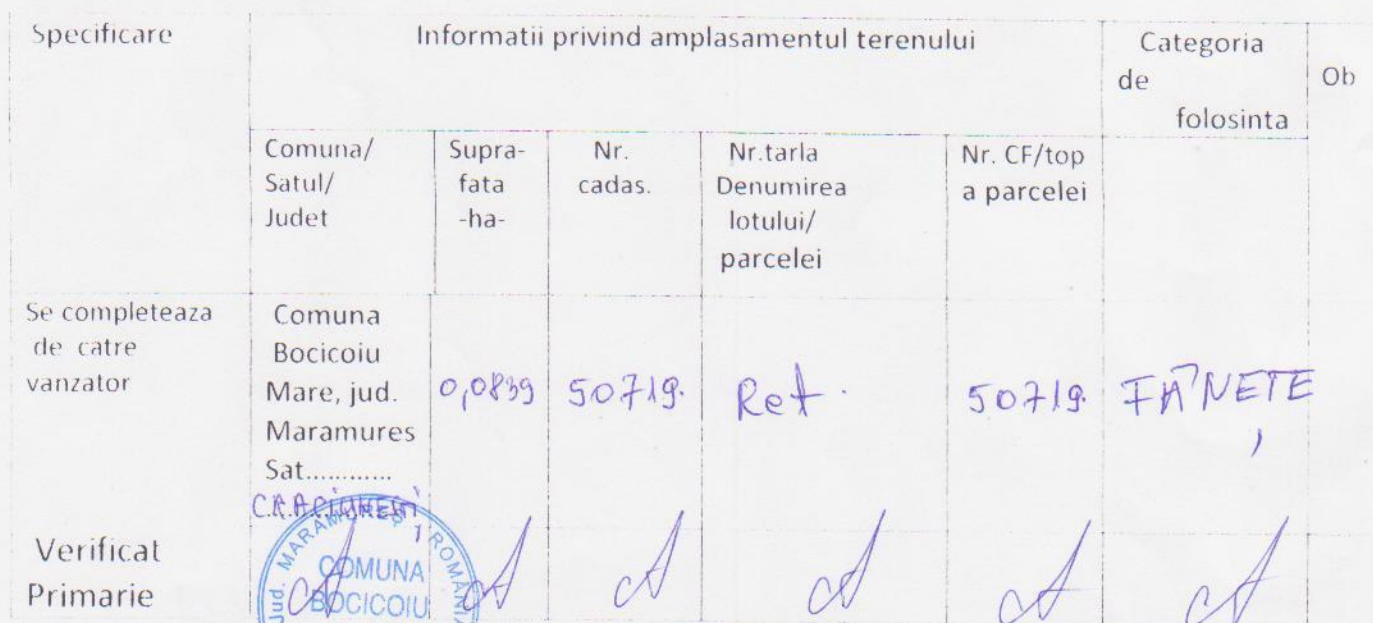 Specificare
Informatii privind amplasamentul terenului
Categoria
de
folosinta
Ob
Comuna/
Satul/
Judet
Supra-
fata
-ha-
Nr.
cadas.
Nr.tarla
Denumirea
lotului/
parcelei
Nr. CF/top
a parcelei
Se completeaza
de catre
vanzator
Comuna
Bocicoiu
Mare, jud.
Maramures
Sat............
CRACIUNEȘTI
0,0839
50719.
Ret.
50719.
FÂNEȚE
Verificat
Primarie
Jud. MARAMUREȘ ROMÂNIA
COMUNA
BOCICOIU